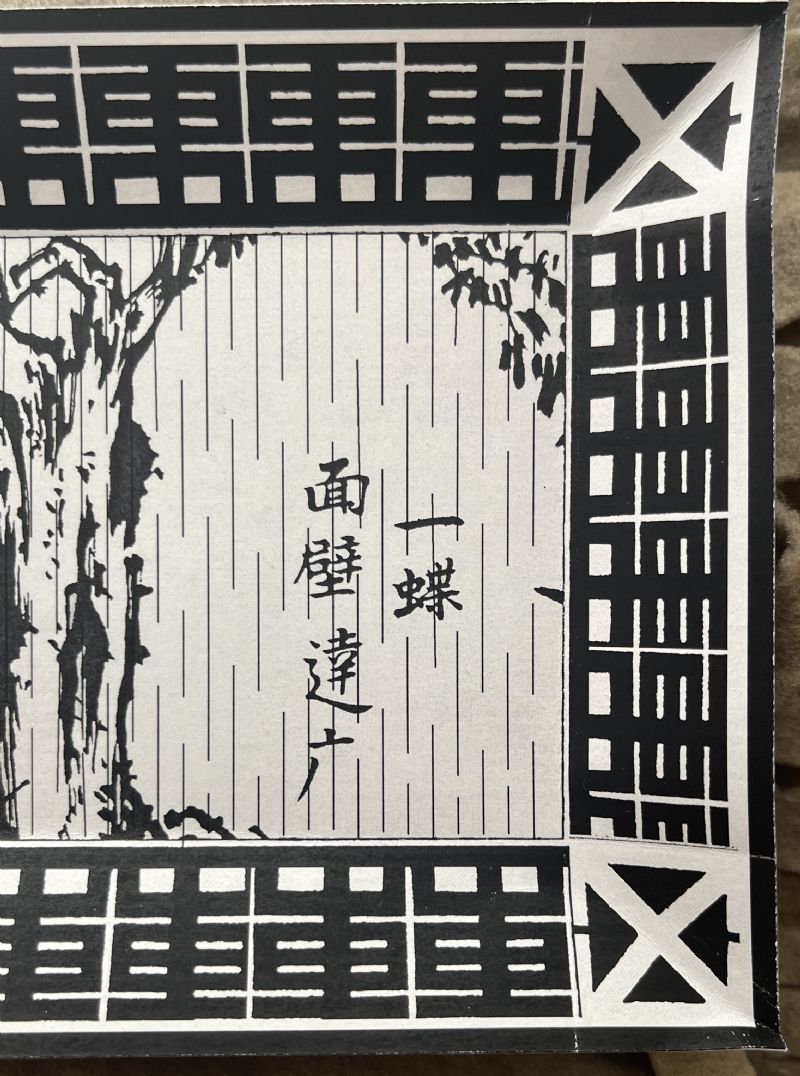 一蝶
面壁達广